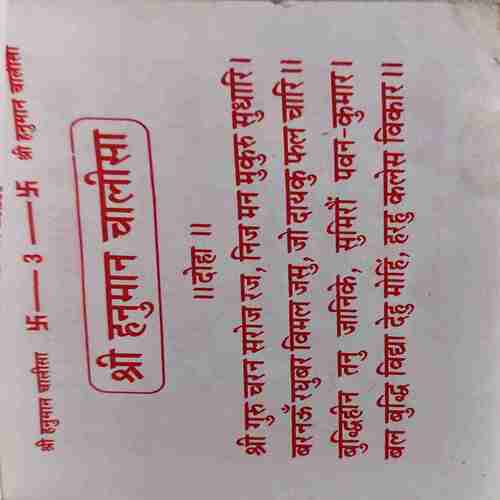 श्री हनुमान चालीसा 卐 — 3 — 卐 श्री हनुमान चालीसा
श्री हनुमान चालीसा
॥दोहा ॥
श्री गुरु चरन सरोज रज, निज मन मुकुरु सुधारि।
बरनऊँ रघुबर बिमल जसु, जो दायकु फल चारि॥
बुद्धिहीन तनु जानिके, सुमिरौं पवन-कुमार।
बल बुद्धि विद्या देहु मोहिं, हरहु कलेस विकार॥